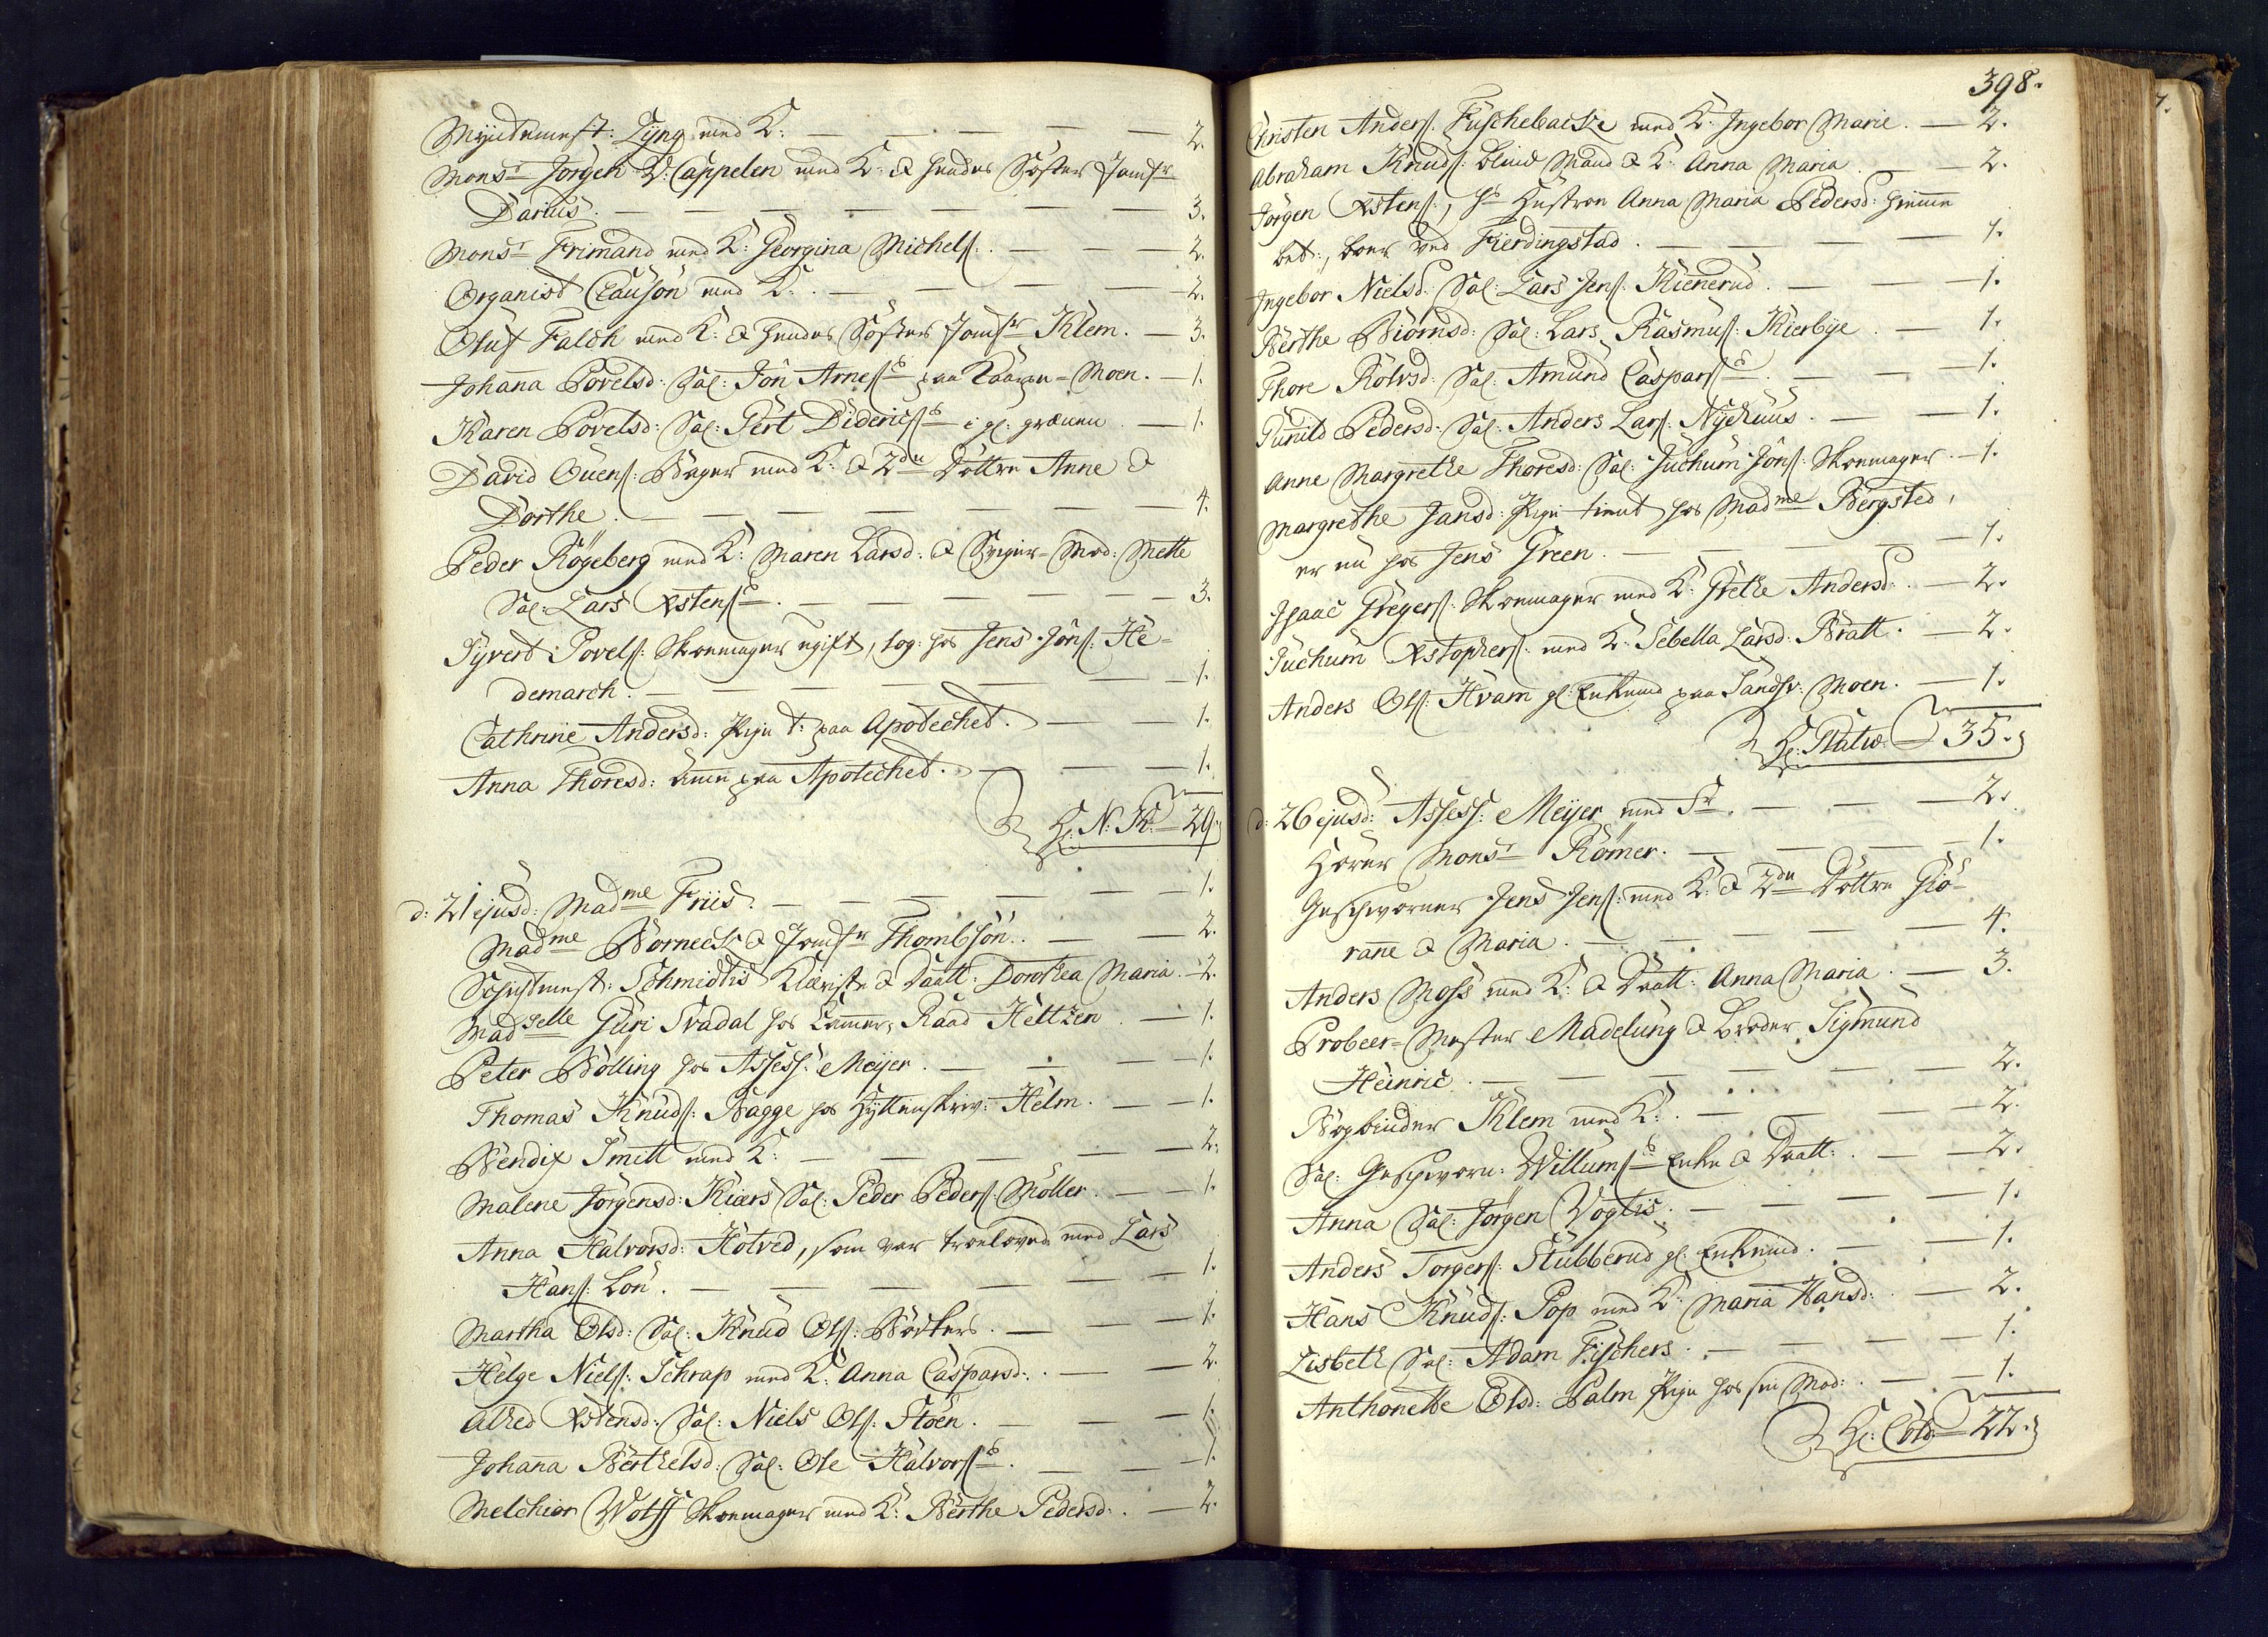 Myntemest: Lyng med K: — 2.
Mons.r Jörgen V: Cappelen med K: & hendes Söster Jomfr
Darius. — 3.
Mons.r Frimand med K: Georgina Michels: — 2.
Organist Clauson med K: — 2.
Oluf Falch med K: & hendes Söster Jomfr Klem. — 3.
Johanna Povelsd: Sal: Jon Arness paa Moen. — 1.
Karen Povelsd: Sal: Pert Diderics i gl: — 1.
David Ouens: Bager med K: & 2de Döttre Anne &
Dorthe. — 4.
Peder Rögeberg med K: Maren Larsd: & Sviger-Mod: Mette
Sal: Lars Xstens. — 3.
Syvert Povels: Skoemager ugift, log: hos Jens Jons: He-
demarch. — 1.
Cathrine Andersd: Pige t: paa Apotechet. — 1.
Anna Thoresd: Amme paa Apotechet. — 1.
H: N: K: — 29.
d: 21 ejusd: Madme Friis. — 1.
Madme Borneck & Jomfr Thombsön. — 2.
Schmidtis & Daatt: Dorothea Maria. — 2.
Madselle Guri Svadal hos Cammer-Raad Heltzen — 1.
Peter Bölling hos Assess: Meyer. — 1.
Thomas Knuds: Bagge hos Hyttenskriv: Helm. — 1.
Bendix Smitt med K: — 2.
Malene Jörgensd: Kiærs Sal: Peder Peders: Möller. — 1.
Anna Halvorsd: Hotved, som var troelovede med Lars
Hans: Lön. — 1.
Martha Olsd: Sal: Knud Ols: Bödkers. — 1.
Helge Niels: Schrap med K: Anna Caspersd: — 2.
Alhed Xstensd: Sal: Niels Ols: Stöen. — 1.
Johanna Berthelsd: Sal: Ole Halvors. — 1.
Melchior Wolff Skoemager med K: Berthe Pedersd: — 2.
398.
Christen Anders: Fuschebache med K: Ingebor Marie. — 2.
Abraham Knuds: blind Mand & K: Anna Maria — 2.
Jörgen Xstens:, hs Hustroe Anna Maria Pedersd: hiemme
bet:, boer ved Fierdingstad. — 1.
Ingebor Nielsd: Sal: Lars Jens: Kienerud. — 1.
Berthe Biörnsd: Sal: Lars Rasmus: Kierbye — 1.
Thore Rolvsd: Sal: Amund Caspars. — 1.
Gunild Pedersd: Sal: Anders Lars: Nyehuus. — 1.
Anne Margrethe Thoresd: Sal: Juchum Jons: Skoemager. — 1.
Margrethe Jansd: Pige tient hos Madme Bergsted,
er nu hos Jens Green. — 1.
Isaac Gregers: Skoemager med K: Grethe Andersd: — 2.
Juchum Xstophers: med K: Sebella Larsd: Bratt. — 2.
Anders Ols: Hvam gl: Enkemd paa Sandsv: Moen. — 1.
H: — 35.
d: 26 ejusd: Assess: Meyer med Fr. — 2.
Hörer Mons.r Römer. — 1.
Geschworner Jens Jens: med K: & 2de Döttre Giö-
ranne & Maria. — 4.
Anders Moss med K: & Daatt: Anna Maria. — 3.
Probeer-Mester Madelung & Broder Sigmund
Heinric. — 2.
Bogbinder Klem med K: — 2.
Sal: Geschworn: Willums Enke & Daatt: — 2.
Anna Sal: Jörgen Vogtis. — 1.
Anders Torgers: Stubberud gl: Enkemd. — 1.
Hans Knuds: Pop med K: Maria Hansd: — 2.
Lisbeth Sal: Adam Fischers. — 1.
Anthonette Olsd: Palm Pige hos sin Mod: — 1.
H: — 22.